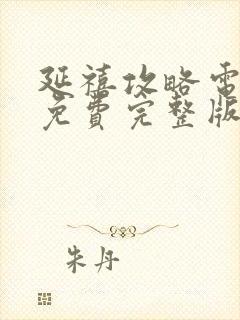 延禧攻略電
免費完整版
朱丹